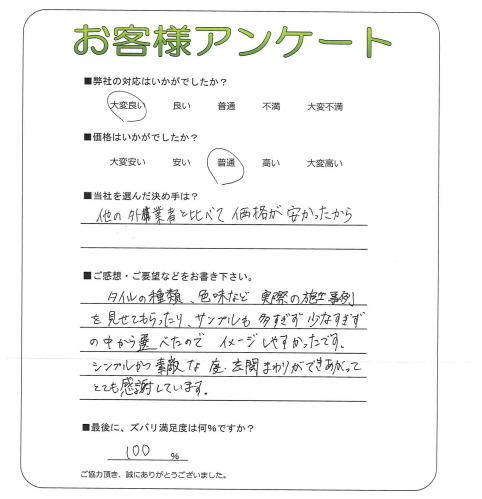 お客様アンケート
■弊社の対応はいかがでしたか？
大変良い 良い 普通 不満 大変不満
■価格はいかがでしたか？
大変安い 安い 普通 高い 大変高い
■当社を選んだ決め手は？
他の外構業者と比べて価格が安かったから
■ご感想・ご要望などをお書き下さい。
タイルの種類、色味など実際の施工事例
を見せてもらったり、サンプルも多すぎず少なすぎず
の中から選べたのでイメージしやすかったです。
シンプルかつ素敵な庭、玄関まわりができあがって
とても感謝しています。
■最後に、ズバリ満足度は何％ですか？
100 ％
ご協力頂き、誠にありがとうございました。